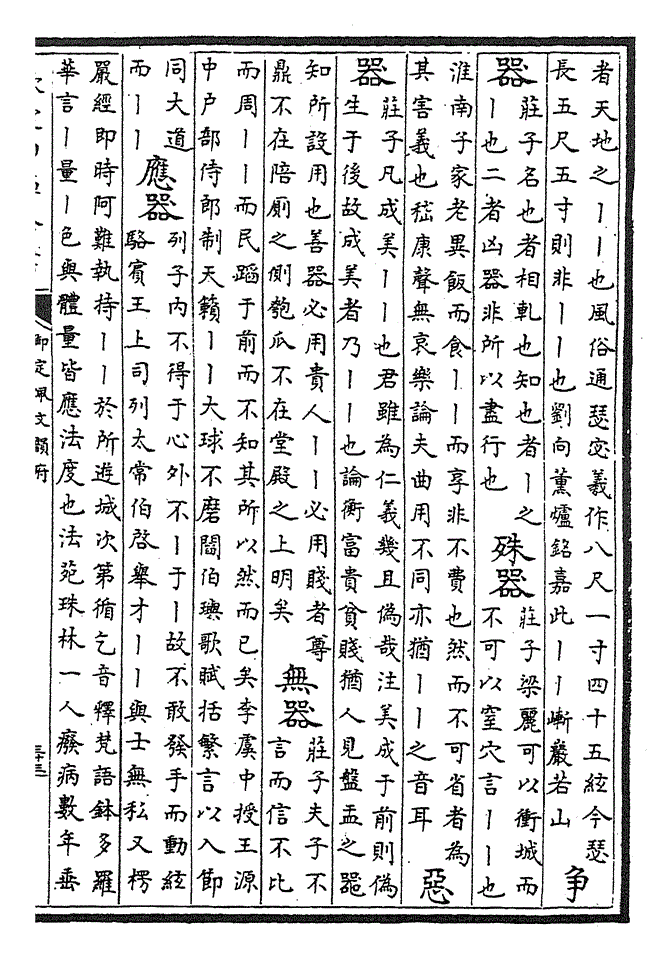 者天地之丨丨也風俗通瑟宓羲作八尺一寸四十五絃今瑟
長五尺五寸則非丨丨也劉向薰爐銘嘉此丨丨嶄巖若山
爭
器
莊子名也者相軋也知也者丨之
丨也二者凶器非所以盡行也
殊器
莊子梁麗可以衝城而
不可以窒穴言丨丨也
淮南子家老異飯而食丨丨而享非不費也然而不可省者為
其害義也嵇康聲無哀樂論夫曲用不同亦猶丨丨之音耳
惡
器
莊子凡成美丨丨也君雖為仁義幾且偽哉注美成于前則偽
生于後故成美者乃丨丨也論衡富貴貧賤猶人見盤盂之器
知所設用也善器必用貴人丨丨必用賤者尊
鼎不在陪廁之側匏瓜不在堂殿之上明矣
無器
莊子夫子不
言而信不比
而周丨丨而民蹈于前而不知其所以然而已矣李虞中授王源
中户部侍郎制天籟丨丨大球不磨閻伯璵歌賦括繁言以入節
同大道
而丨丨
應器
列子内不得于心外不丨于丨故不敢發手而動絃
駱賓王上司列太常伯啓舉才丨丨與士無私又楞
嚴經即時阿難執持丨丨於所遊城次第循乞音釋梵語鉢多羅
華言丨量丨色與體量皆應法度也法苑珠林一人癈病數年垂
御定佩文韻府
三十三